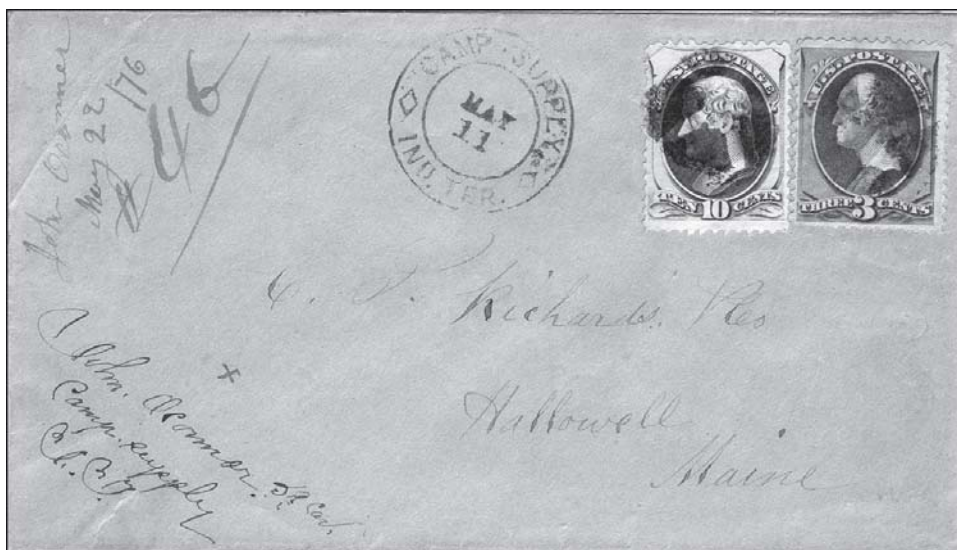 John O'Connor
May 22 /76
46
CAMP SUPPLY
MAY
11
IND. TER.
U.S. POSTAGE
TEN 10 CENTS
U.S. POSTAGE
THREE 3 CENTS
C. P. Richards.
Hallowell
Maine
x
John
Camp Supply